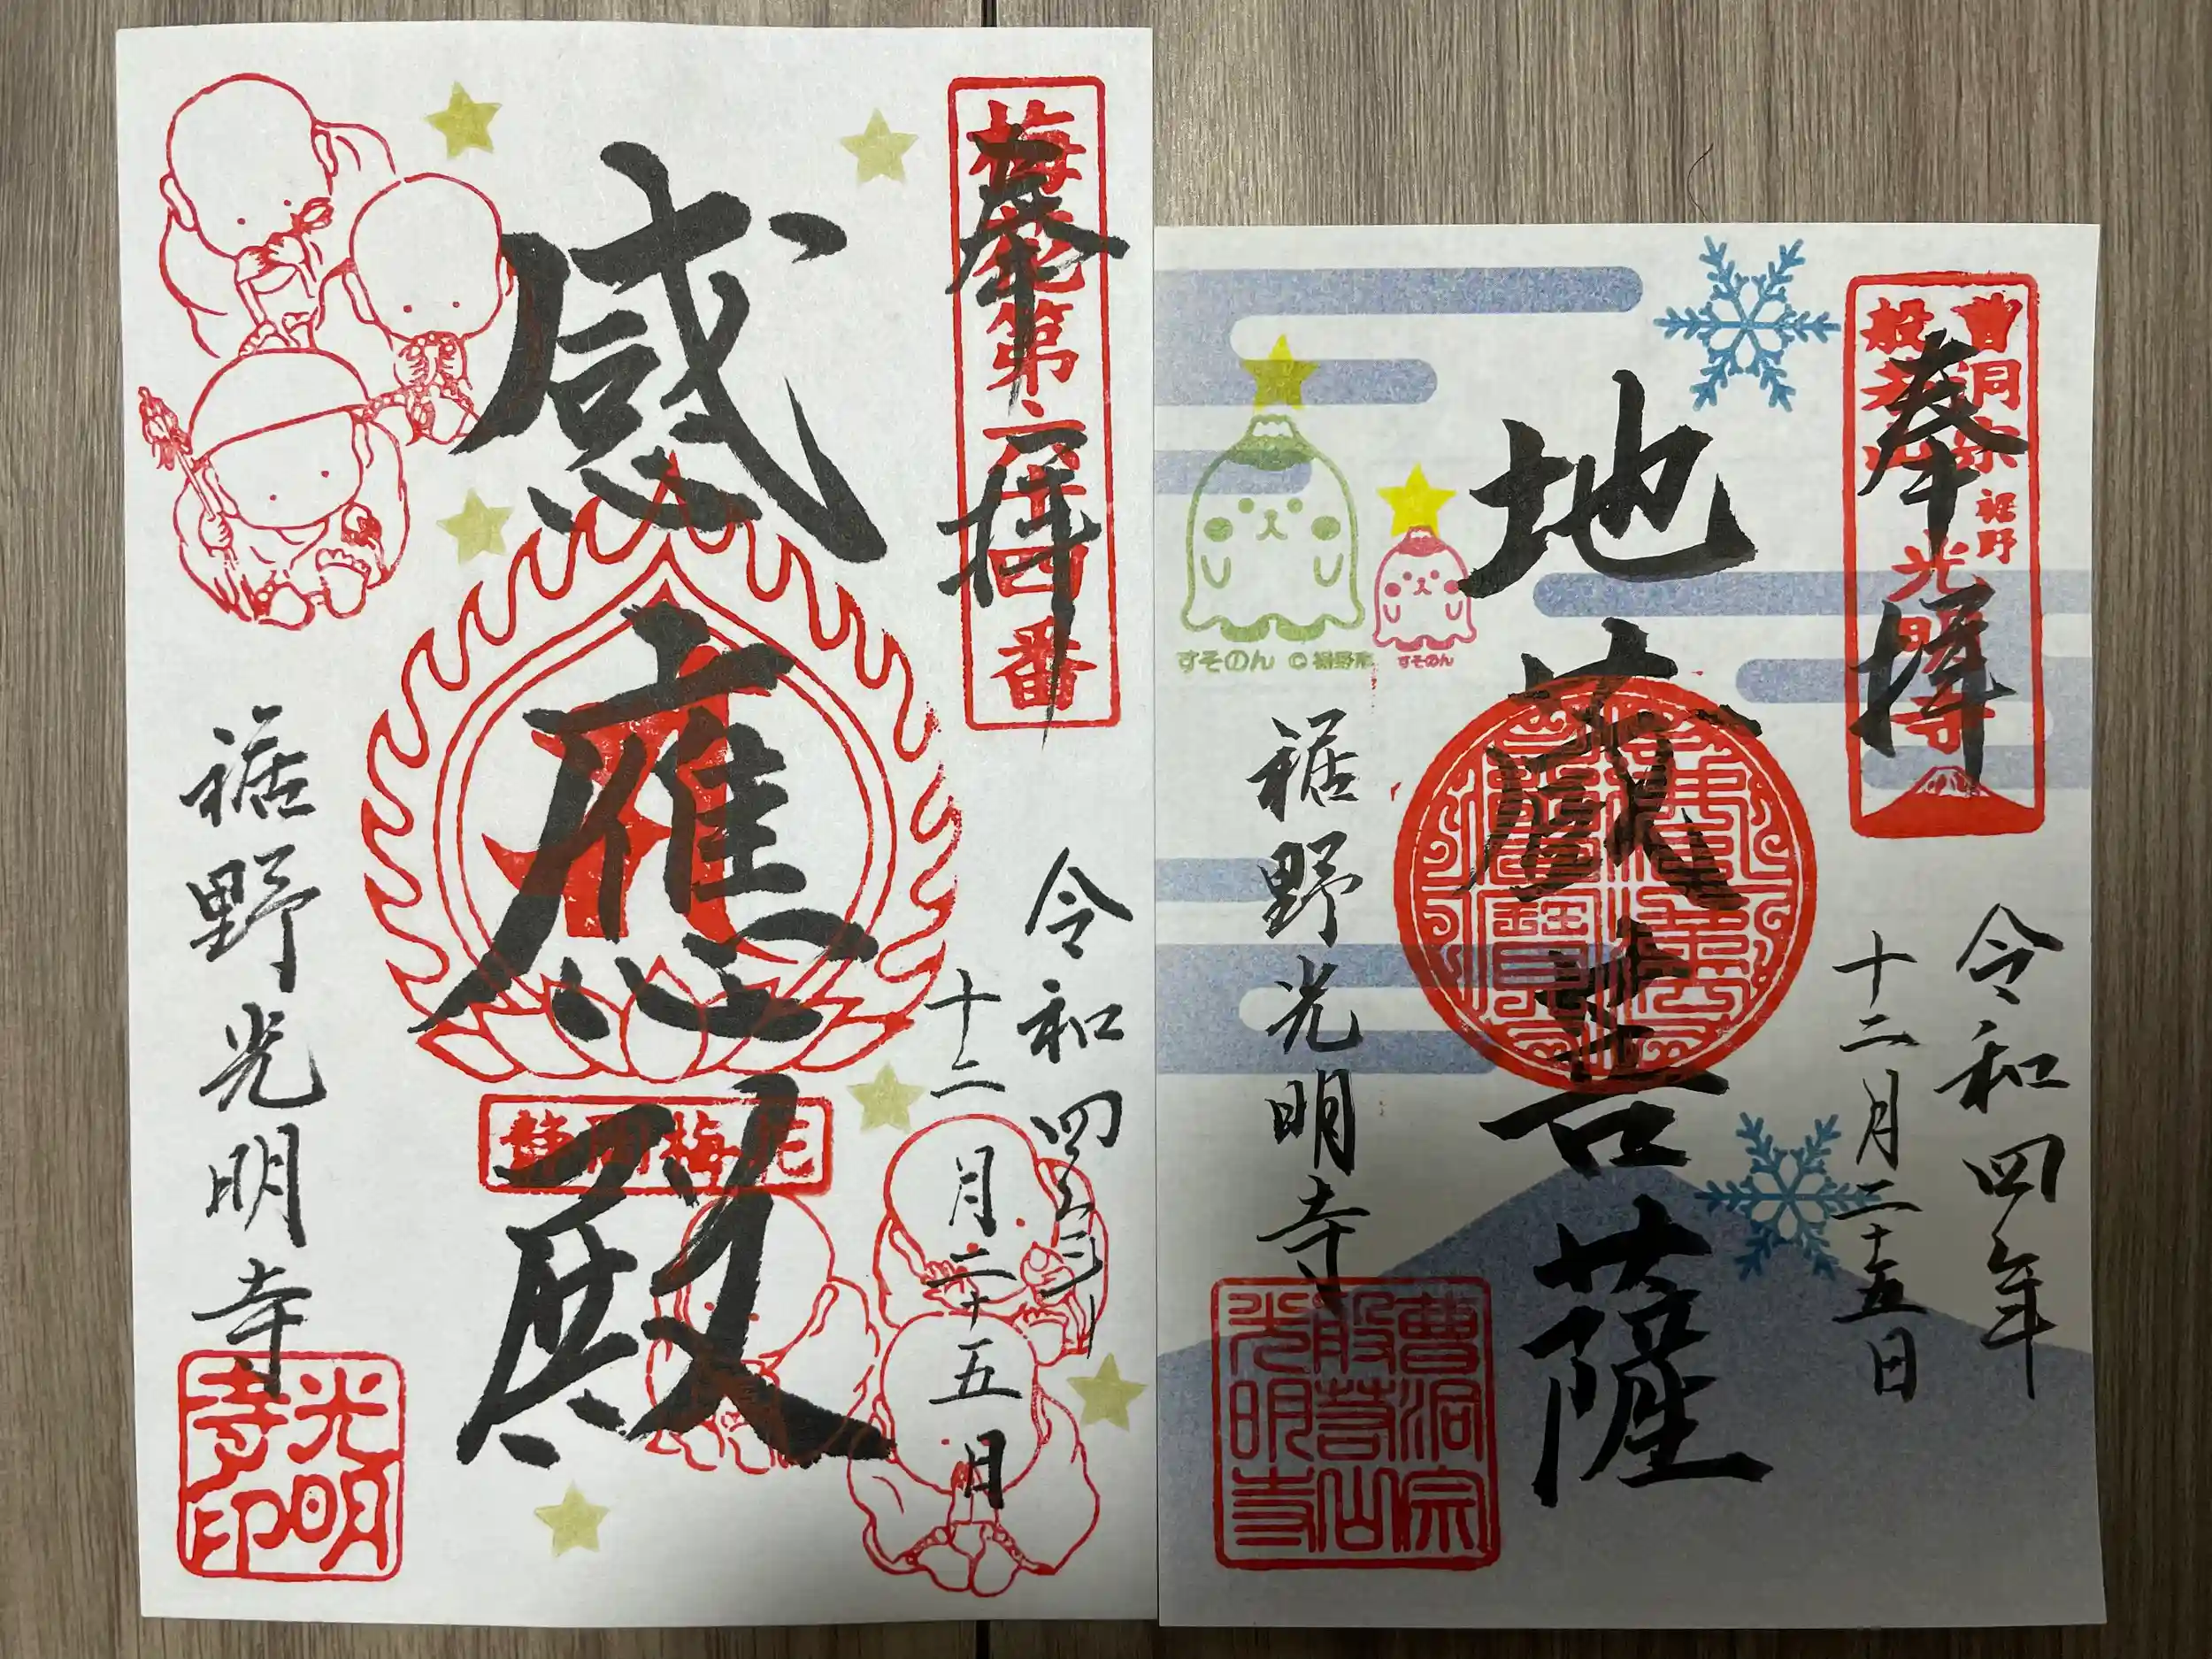 奉拝
梅花第六十四番
令和四年
十二月二十五日
感應殿
静岡梅花
裾野光明寺
光明寺印
奉拝
曹洞宗
裾野
般若山
光明寺
令和四年
十二月二十五日
地蔵世音菩薩
すそのん © 裾野市
すそのん
裾野光明寺
曹洞宗
般若山
光明寺